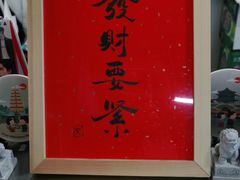 發財要緊